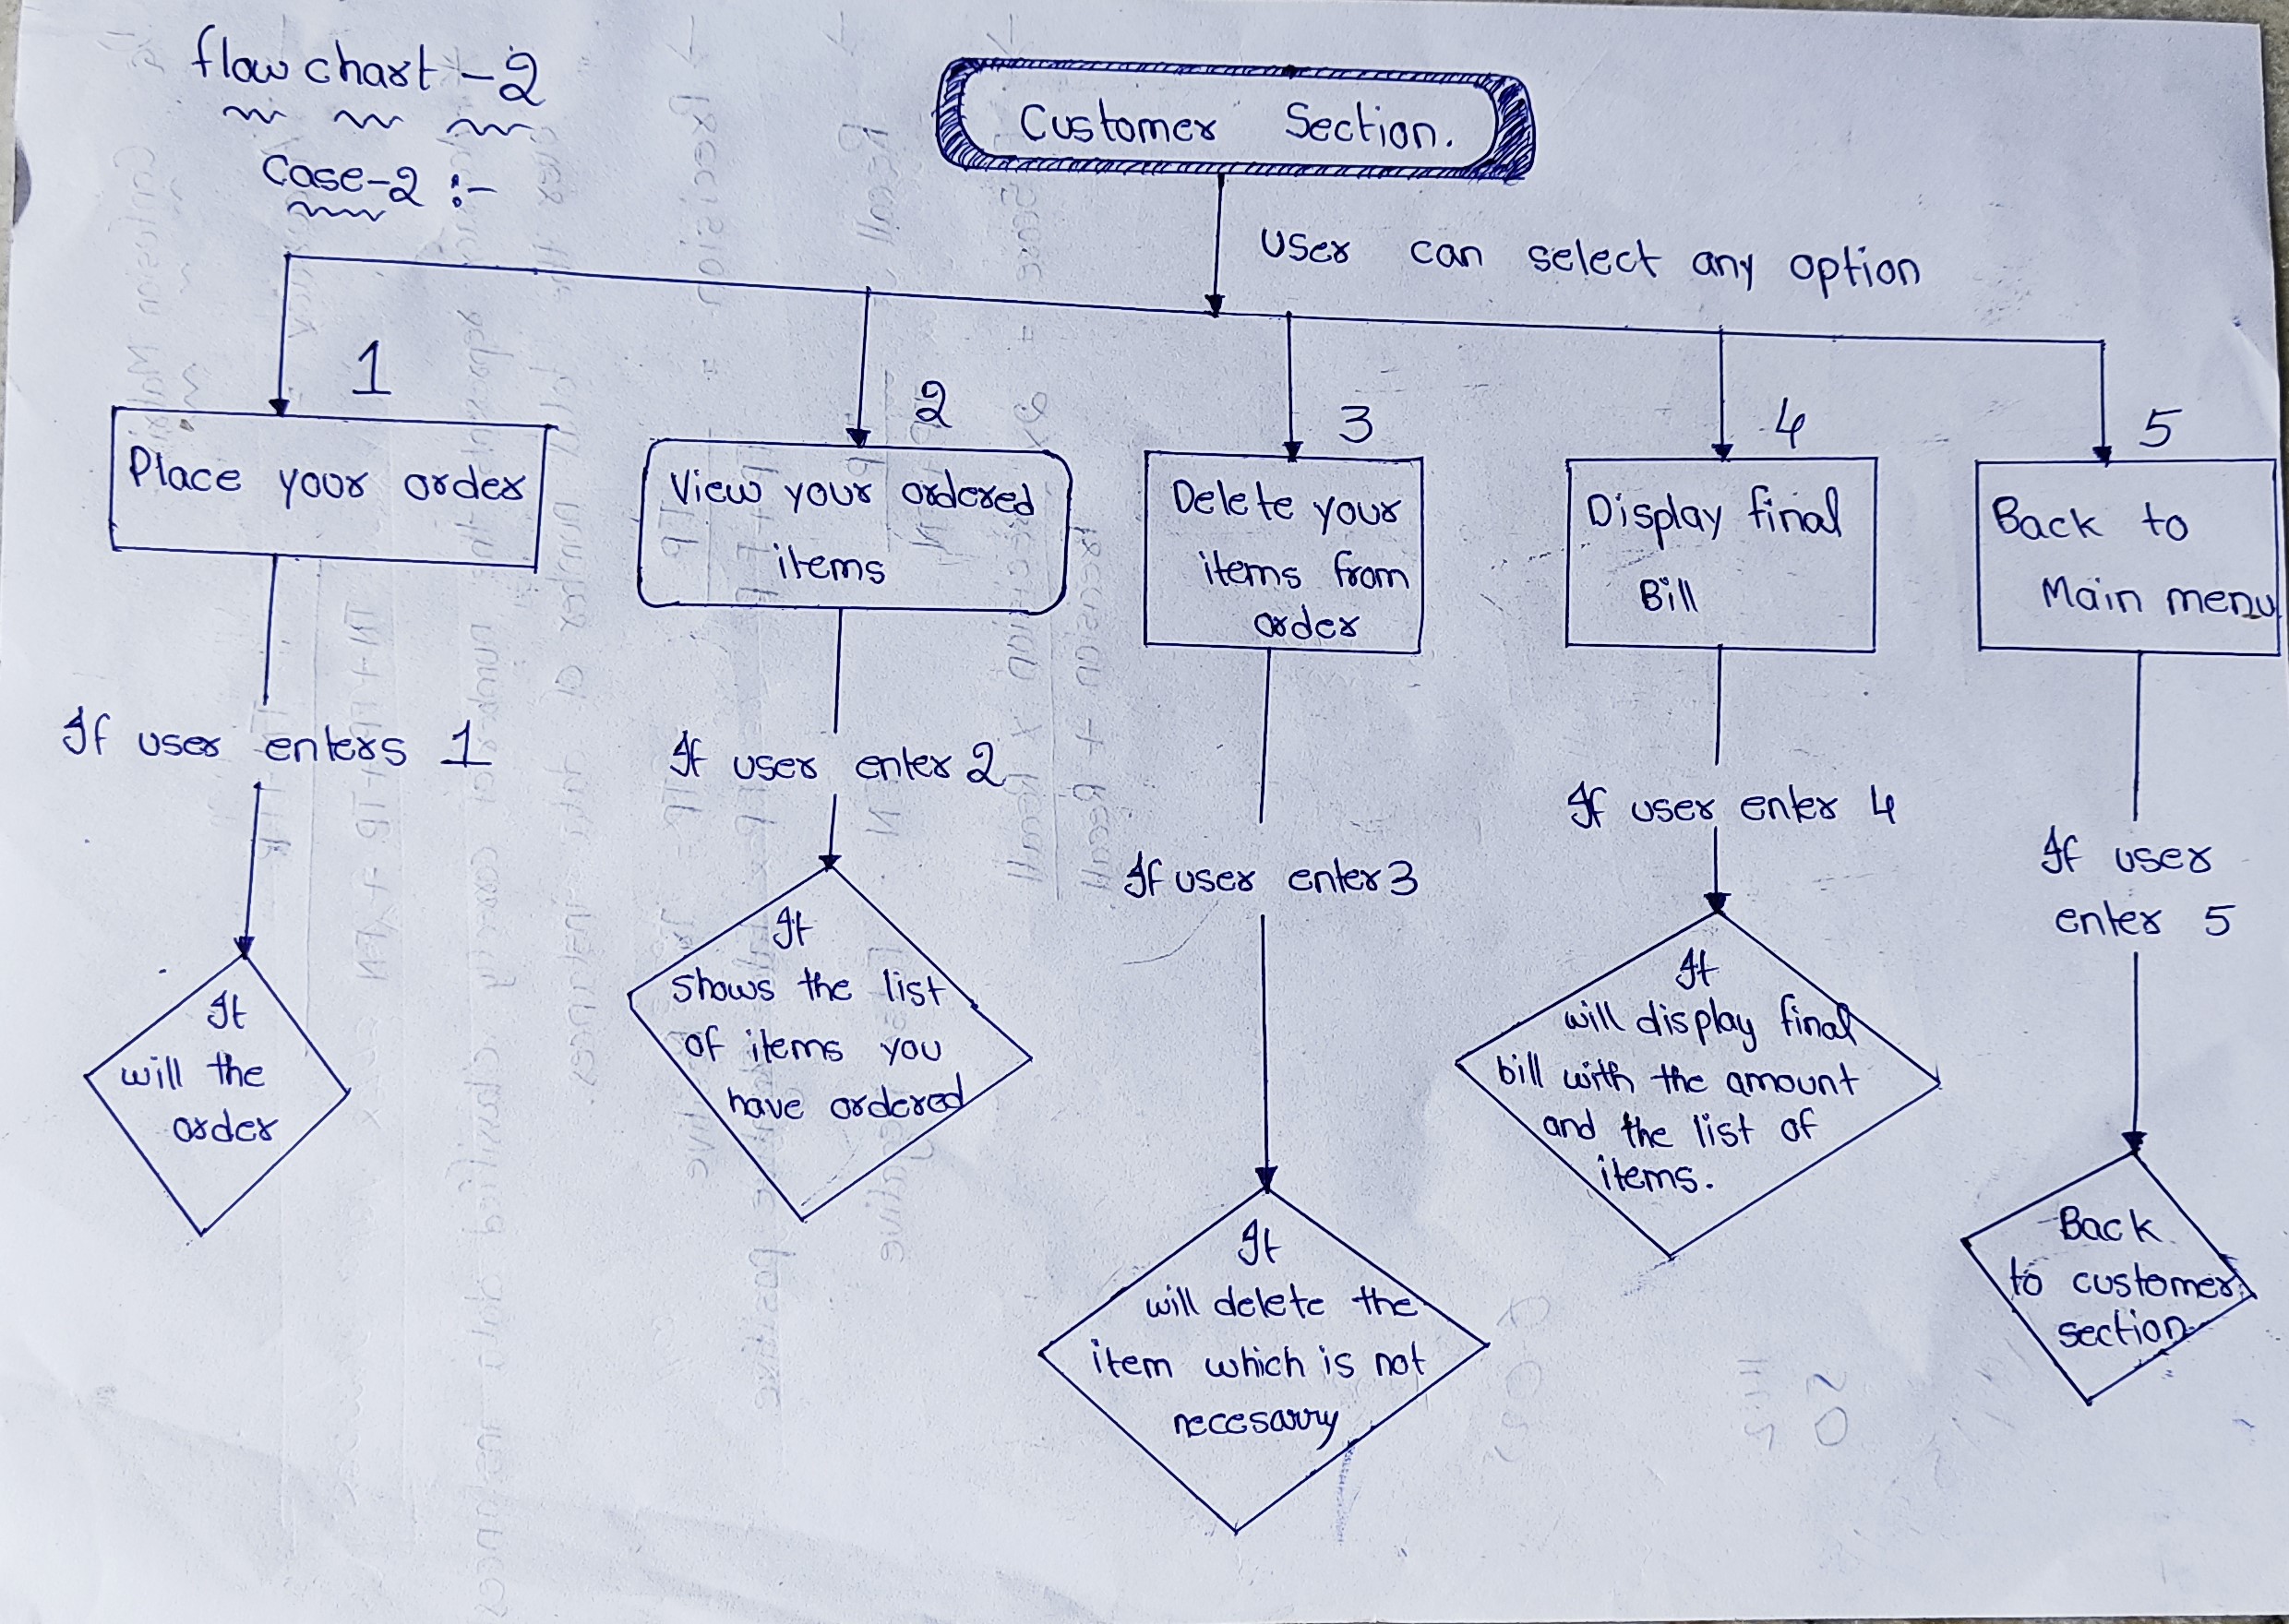 flow chart - 2
Case-2 :-
Customer Section.
user can select any option
1
Place your order
If user enters 1
It
will the
order
2
View your ordered
items
If user enter 2
It
shows the list
of items you
have ordered
3
Delete your
items from
order
If user enter 3
It
will delete the
item which is not
necesarry
4
Display final
Bill
If user enter 4
It
will display final
bill with the amount
and the list of
items.
5
Back to
Main menu
If user
enter 5
Back
to customer
section